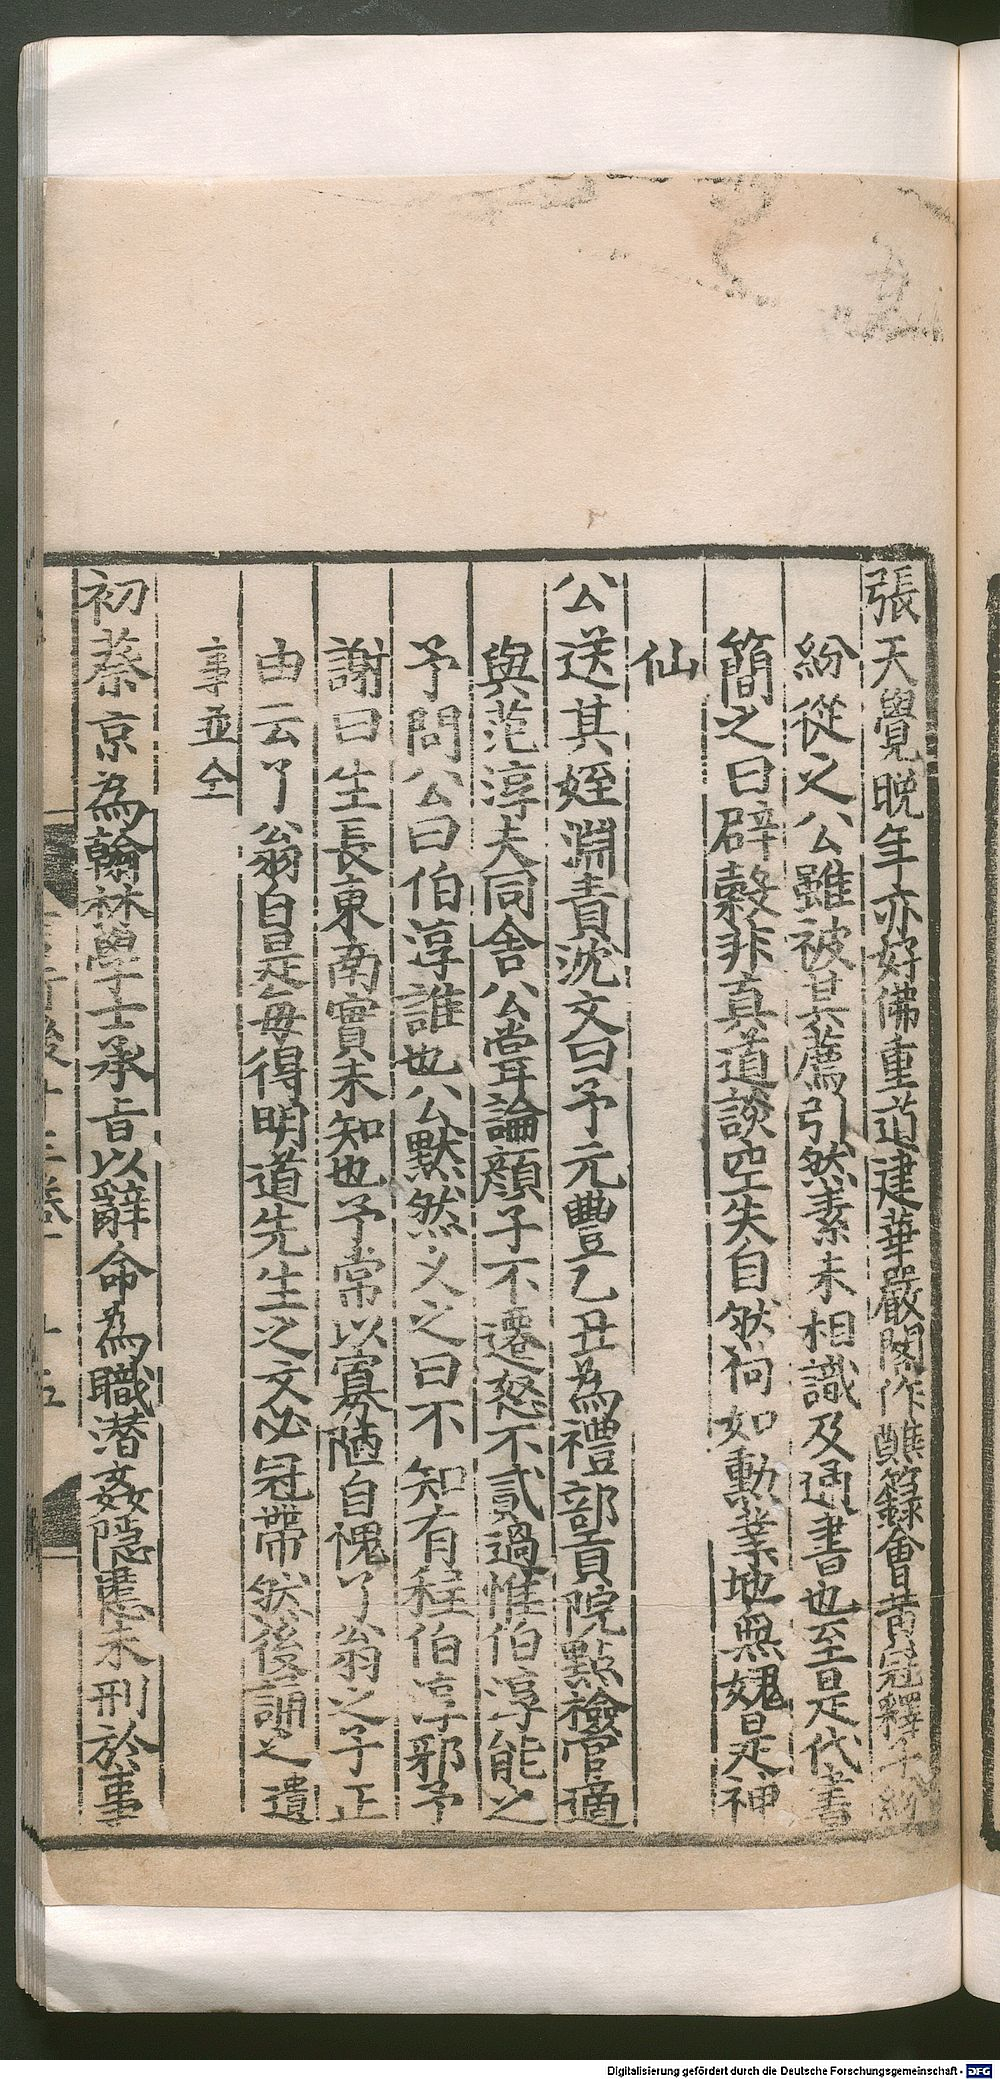 張天覺晚年亦好佛重道建華嚴閣作醮籙會黃冠釋子紛
紛從之公雖被其薦引然素未相識及通書也至是代書
簡之曰辟穀非真道談空失自然何如勳業地無媿是神
仙
公送其姪淵責沈文曰予元豐乙丑為禮部貢院點檢官適
與范淳夫同舍公嘗論顔子不遷怒不貳過惟伯淳能之
予問公曰伯淳誰也公默然久之曰不知有程伯淳邪予
謝曰生長東南實未知也予常以寡陋自愧了翁之子正
由云了翁自是每得明道先生之文必冠帶然後誦之遺
事並仝
初蔡京為翰林學士承旨以辭命為職潜姦隠慝未刑於事
言行後十三卷 十五
Digitalisierung gefördert durch die Deutsche Forschungsgemeinschaft - DFG